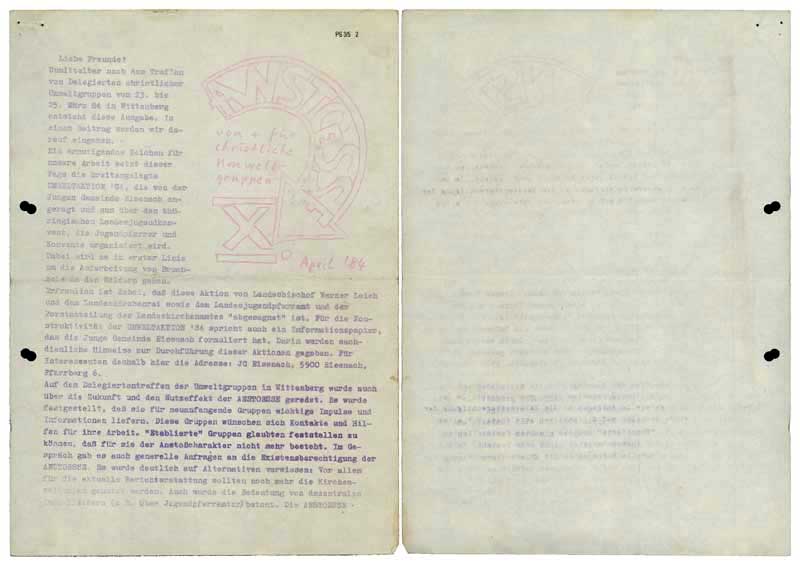 PS 35 2
Liebe Freunde!
Unmittelbar nach dem Treffen
von Delegierten christlicher
Umweltgruppen von 23. bis
25. März 84 in Wittenberg
entsteht diese Ausgabe. In
einem Beitrag werden wir da-
rauf eingehen.
Ein ermutigendes Zeichen für
unsere Arbeit setzt dieser
Tage die breitangelegte
UMWELTAKTION '84, die von der
Jungen Gemeinde Eisenach an-
geregt und nun über den thü-
ringischen Landesjugendkon-
vent, die Jugendpfarrer und
Konvente organisiert wird.
Dabei wird es in erster Linie
um die Aufarbeitung von
in den Wäldern gehen.
ANSTÖSSE
von + für
christliche
Umwelt-
gruppen
X
April '84
Erfreulich ist dabei, daß diese Aktion von Landesbischof Werner Leich
und dem Landeskirchenrat sowie dem Landesjugendpfarramt und der
Forstabteilung des Landeskirchenamtes "abgesegnet" ist. Für die Kon-
struktivität der UMWELTAKTION '84 spricht auch ein Informationspapier,
das die Junge Gemeinde Eisenach formuliert hat. Darin werden sach-
dienliche Hinweise zur Durchführung dieser Aktionen gegeben. Für
Interessenten deshalb hier die Adresse: JG Eisenach, 5900 Eisenach,
Pfarrberg 6.
Auf dem Delegiertentreffen der Umweltgruppen in Wittenberg wurde auch
über die Zukunft und den Nutzeffekt der ANSTÖSSE geredet. Es wurde
festgestellt, daß sie für neuanfangende Gruppen wichtige Impulse und
Informationen liefern. Diese Gruppen wünschen sich Kontakte und Hil-
fen für ihre Arbeit. "Etablierte" Gruppen glaubten feststellen zu
können, daß für sie der Anstoßcharakter nicht mehr besteht. Im Ge-
spräch gab es auch generelle Anfragen an die Existenzberechtigung der
ANSTÖSSE. Es wurde deutlich auf Alternativen verwiesen: Vor allen
für die aktuelle Berichterstattung sollten noch mehr die Kirchen-
zeitungen genutzt werden. Auch wurde die Bedeutung von dezentralen
(z.B. über Jugendpfarrämter) betont. Die ANSTÖSSE